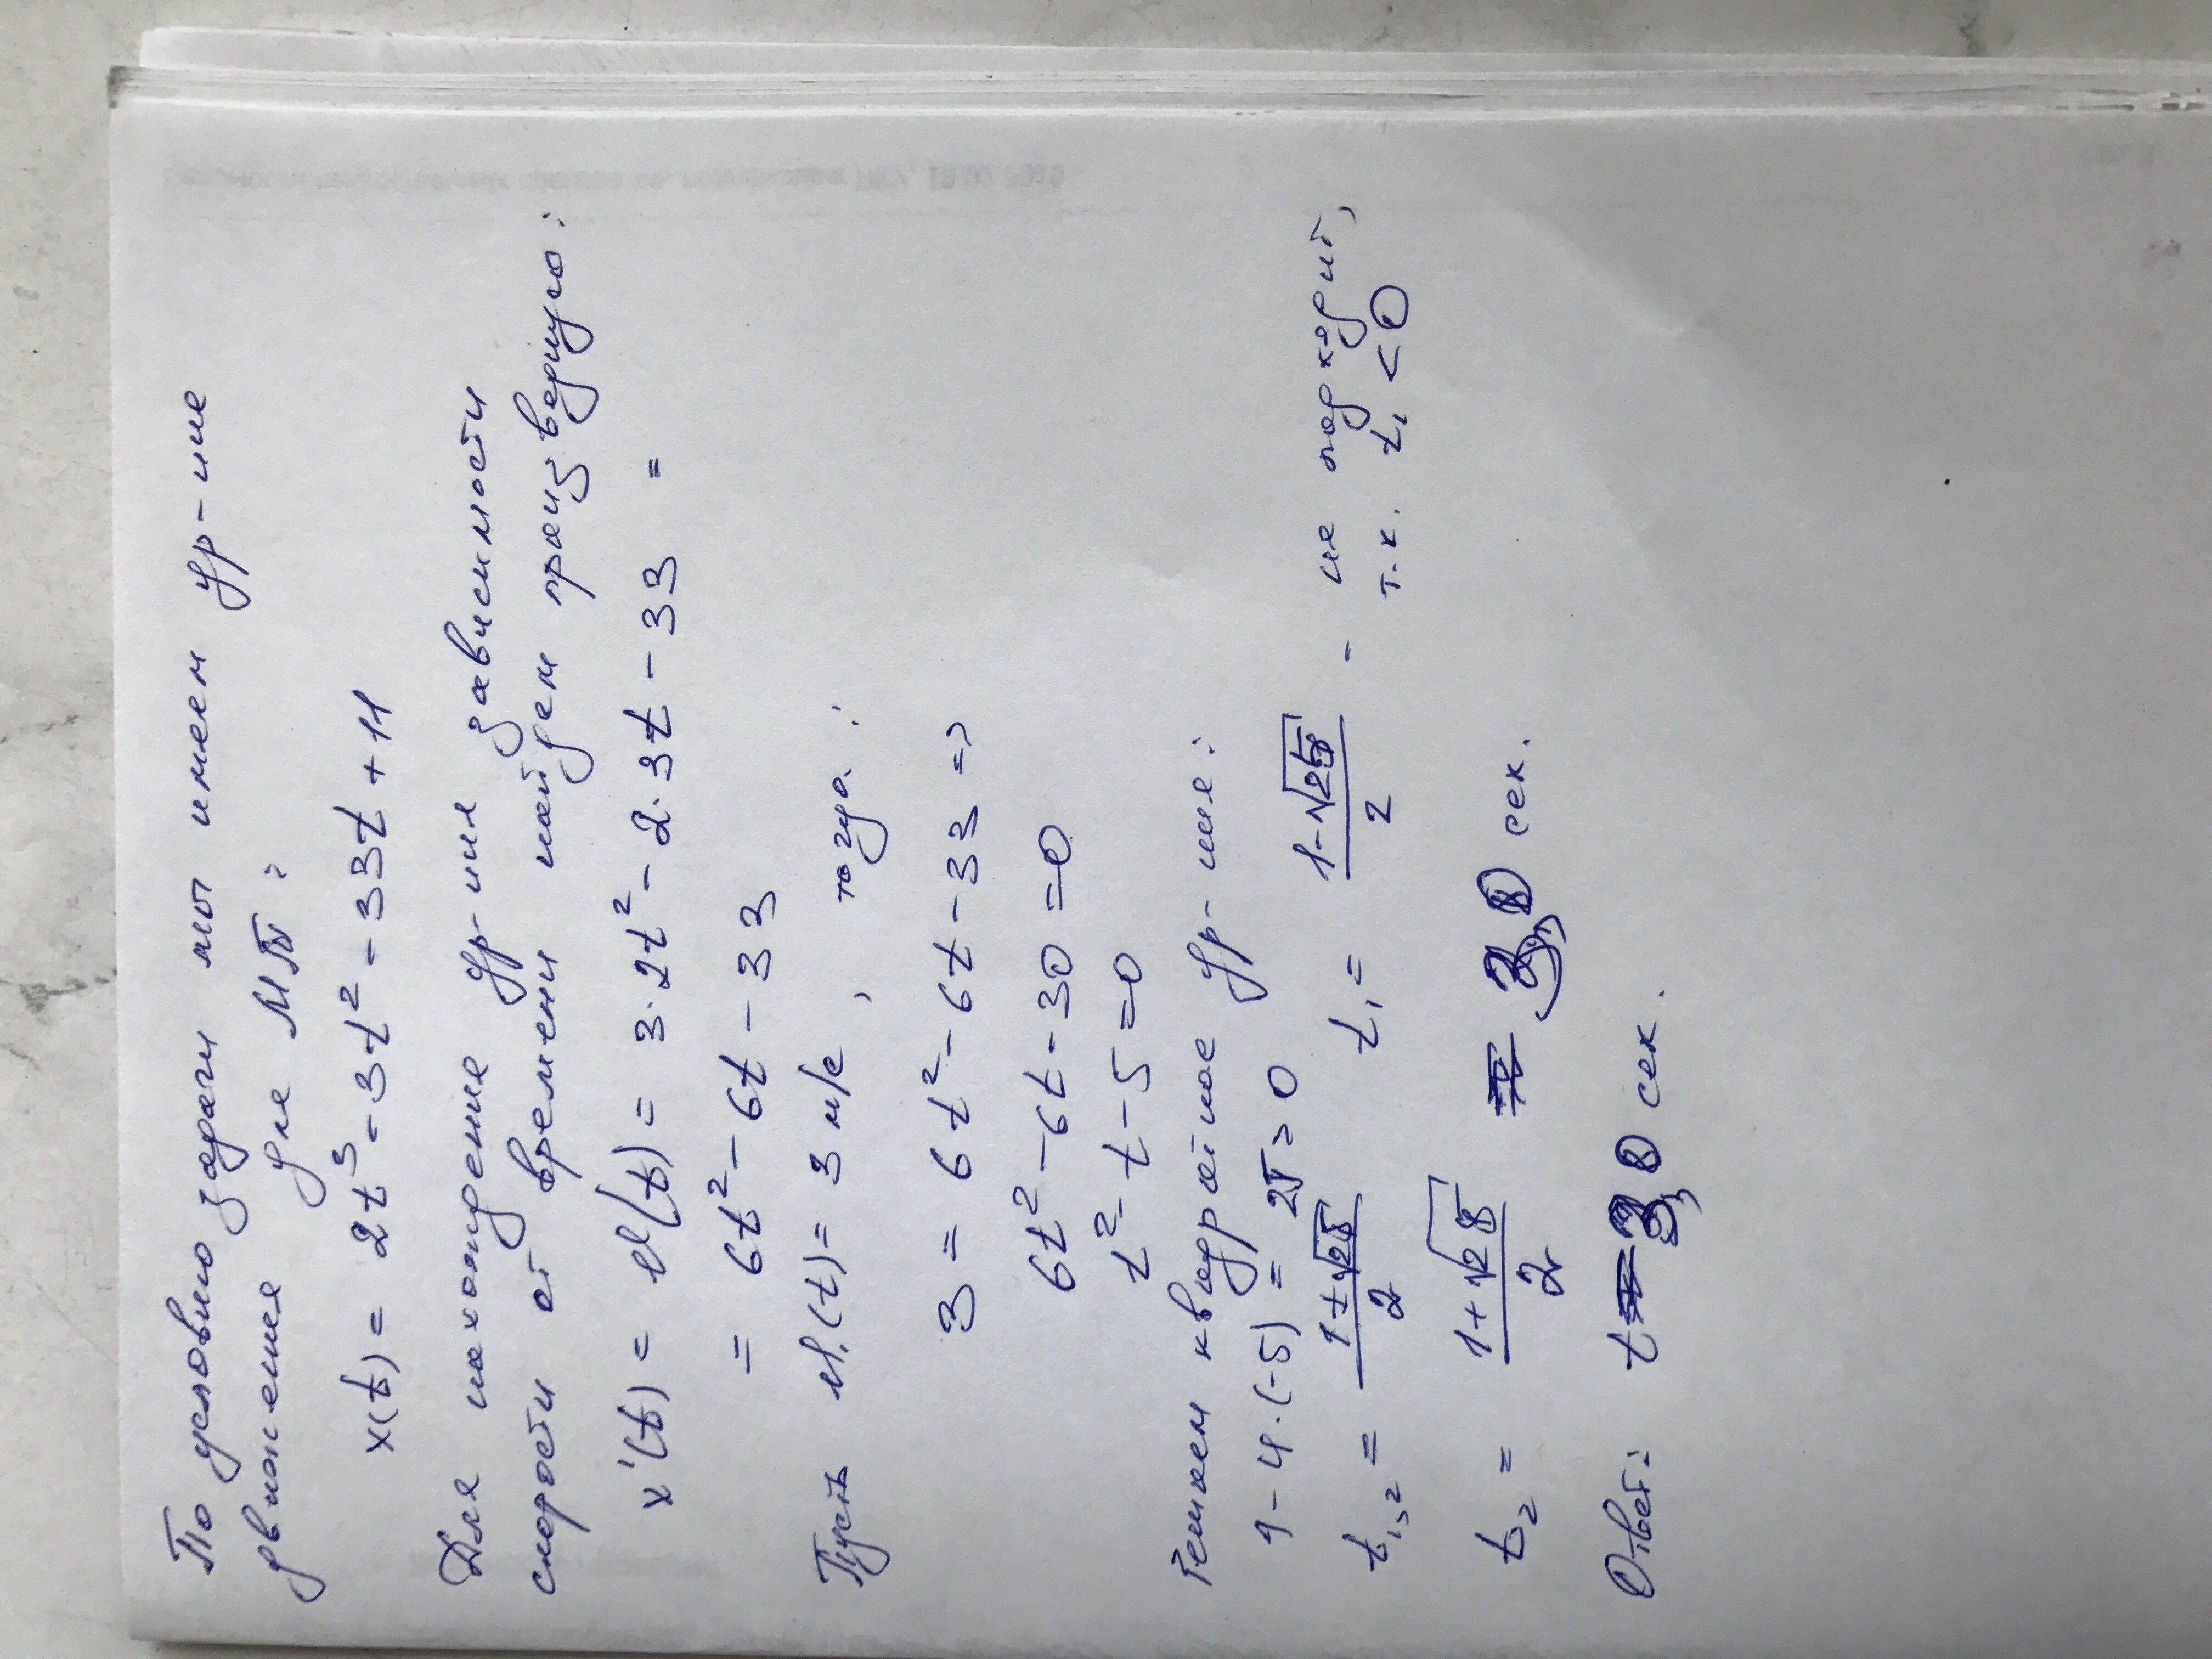 По условию задачи мы имеем ур-ние
движения для МТ:
x(t) = 2t³ - 3t² - 33t + 11
Для нахождения ур-ния зависимости
скорости от времени найдем производную:
x'(t) = v(t) = 3·2t² - 2·3t - 33 =
= 6t² - 6t - 33
Пусть v(t) = 3 м/с, тогда:
3 = 6t² - 6t - 33 =>
6t² - 6t - 30 = 0
t² - t - 5 = 0
Решаем квадратное ур-ние:
1 - 4·(-5) = > 0
t₁,₂ = t₁ = - не подходит,
т.к. t₁ < 0
t₂ = сек.
Ответ: сек.